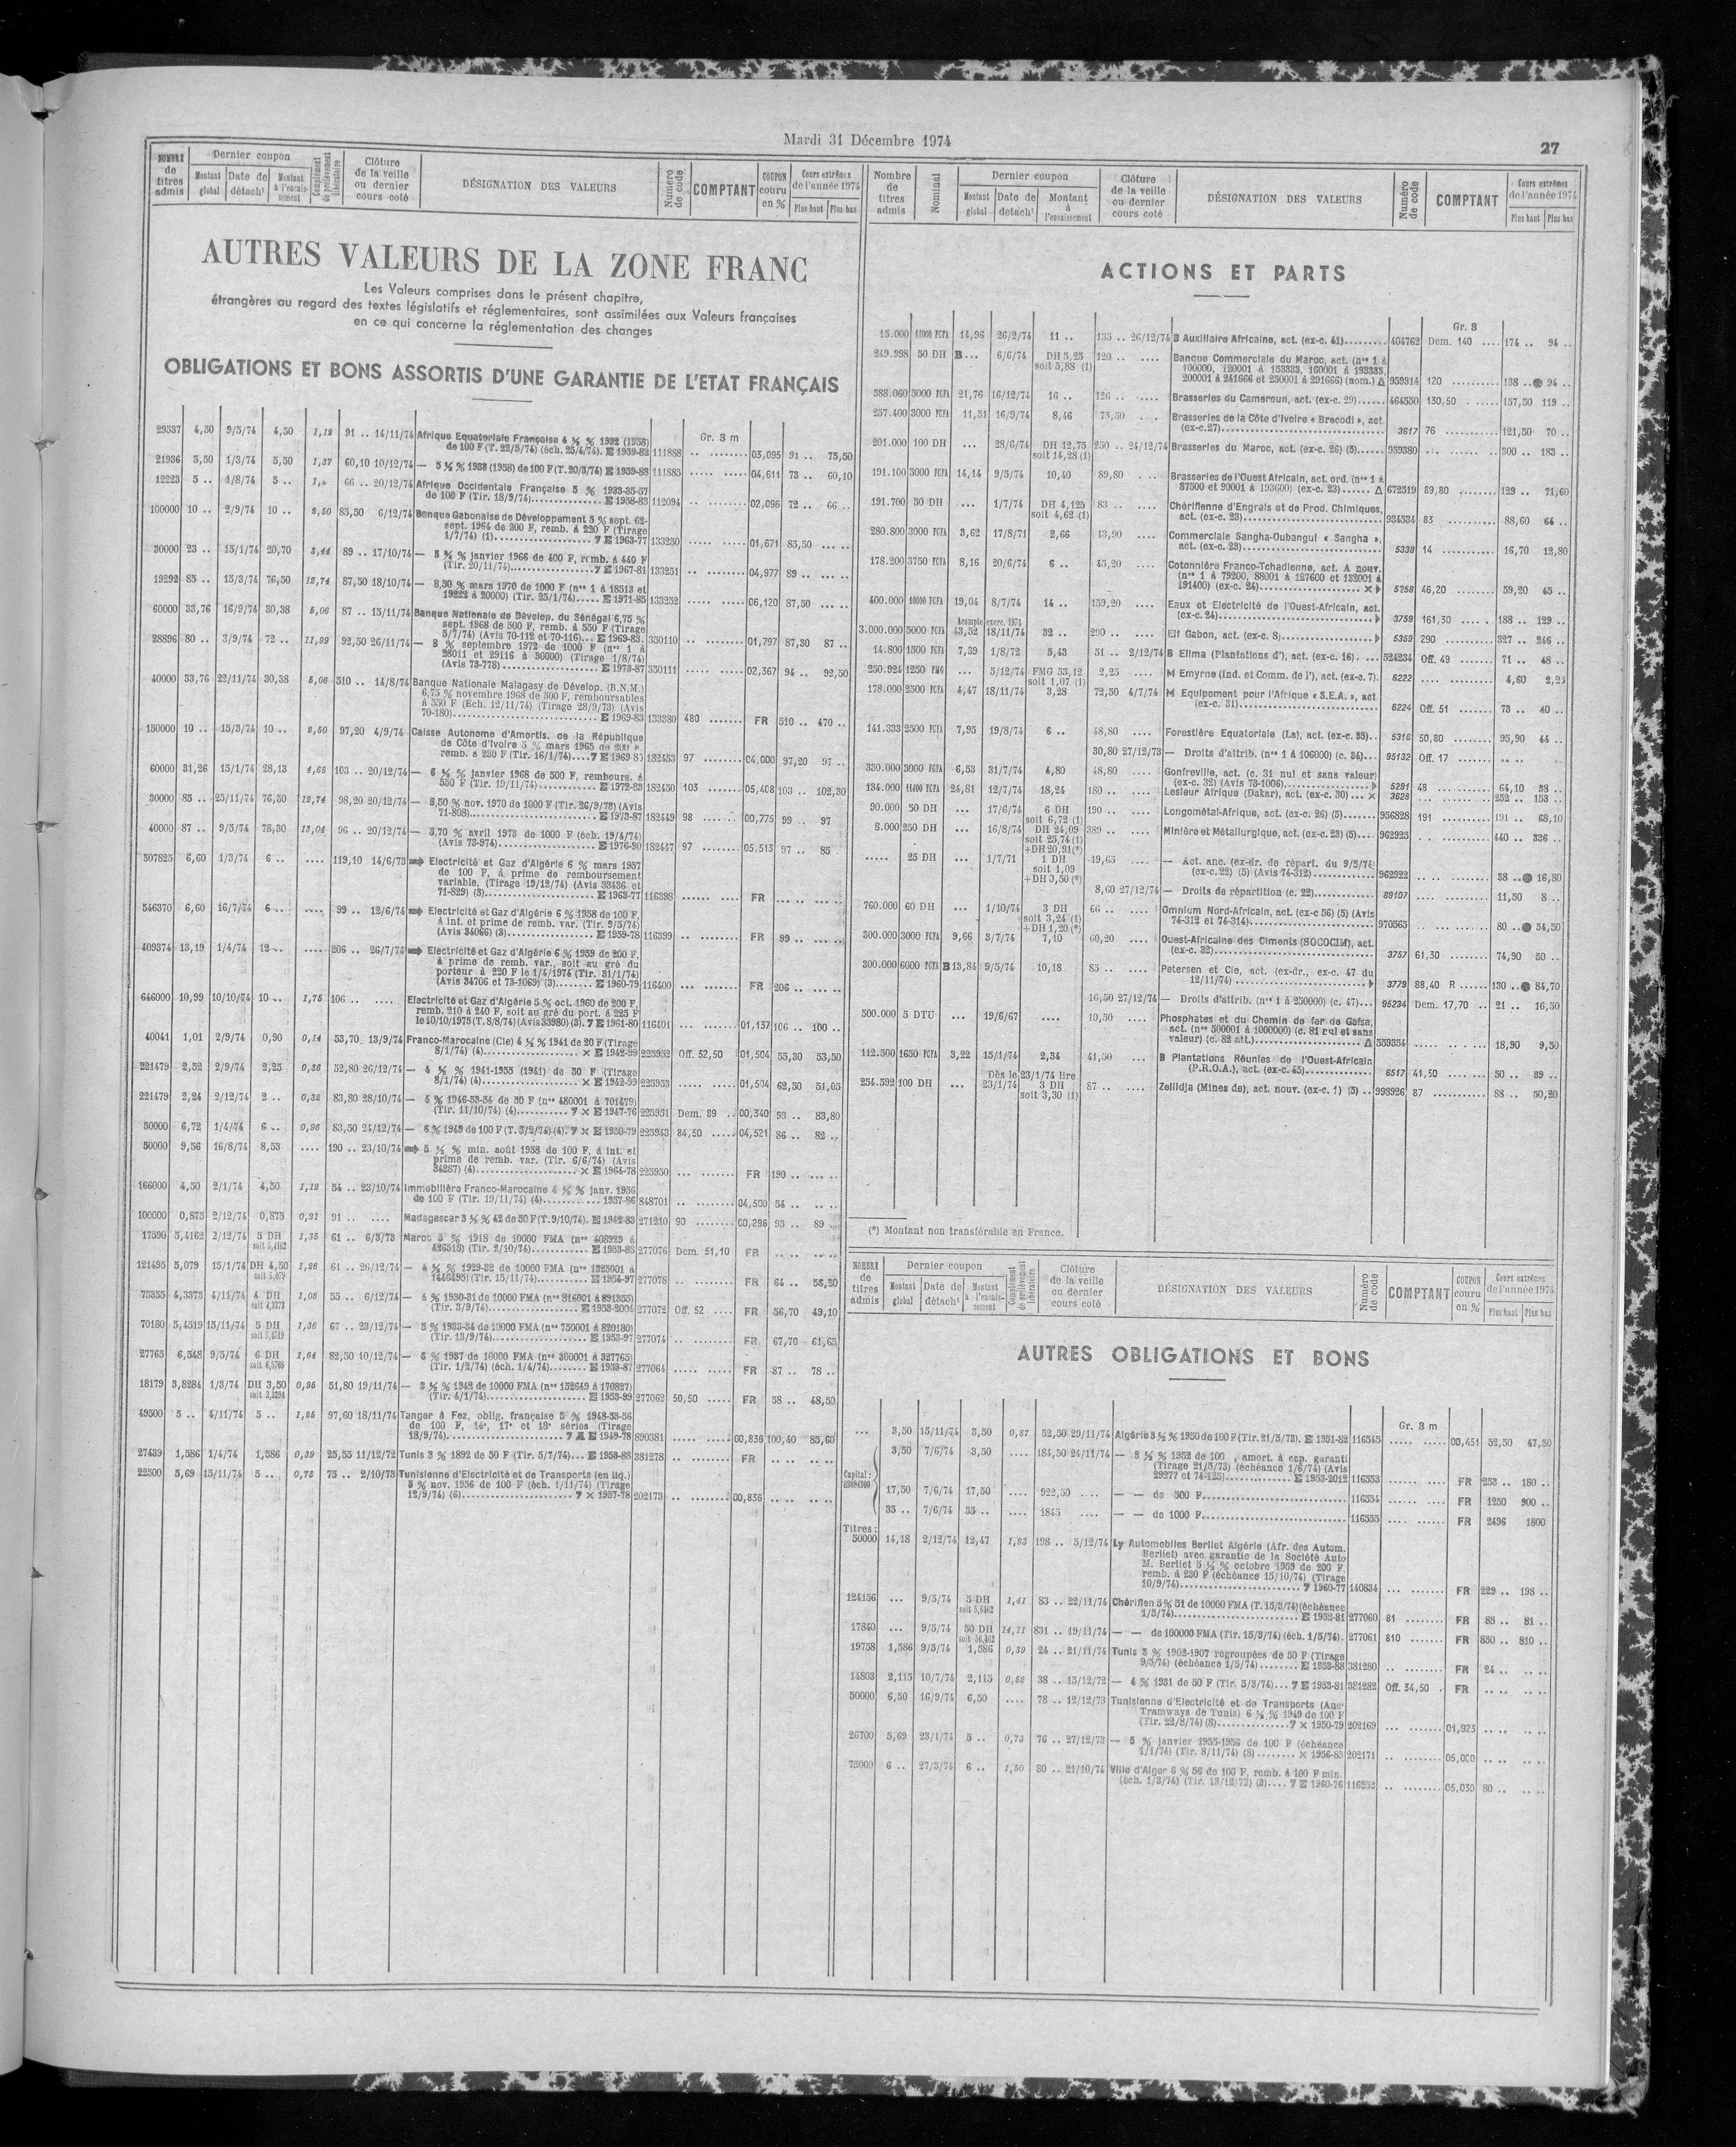 Mardi 31 Décembre 1974
27
NOMBRE de titres admis
Dernier coupon
Montant global
Date de détach¹
Montant à l'encaissement
Complément de prélèvement libératoire
Clôture de la veille ou dernier cours coté
DÉSIGNATION DES VALEURS
Numéro de code
COMPTANT
COUPON couru en %
Cours extrêmes de l'année 1974
Plus haut
Plus bas
AUTRES VALEURS DE LA ZONE FRANC
Les Valeurs comprises dans le présent chapitre,
étrangères au regard des textes législatifs et réglementaires, sont assimilées aux Valeurs françaises
en ce qui concerne la réglementation des changes
OBLIGATIONS ET BONS ASSORTIS D'UNE GARANTIE DE L'ETAT FRANÇAIS
Gr. 3 m
29537 4,50 9/5/74 4,50 1,12 91 .. 14/11/74 Afrique Equatoriale Française 4 ½ % 1932 (1958)
de 100 F (T. 22/5/74) (éch. 25/4/74). E 1959-82 111888 .. ........ 03,095 91 .. 75,50
21936 5,50 1/3/74 5,50 1,37 60,10 10/12/74 — 5 ½ % 1933 (1958) de 100 F (T. 20/3/74) E 1959-88 111885 ..... ..... 04,611 73 .. 60,10
12223 5 .. 1/8/74 5 .. 66 .. 20/12/74 Afrique Occidentale Française 5 % 1933-35-37
de 100 F (Tir. 18/9/74)............... E 1958-83 112094 .. ........ 02,096 72 .. 66 ..
100000 10 .. 2/9/74 10 .. 2,50 85,50 6/12/74 Banque Gabonaise de Développement 5 % sept. 62-
sept. 1964 de 200 F, remb. à 220 F (Tirage
1/7/74) (1)..................... 7 E 1963-77 133250 ..... ..... 01,671 85,50 ... ..
30000 23 .. 15/1/74 20,70 3,44 89 .. 17/10/74 — 5 ¾ % janvier 1966 de 400 F, remb. à 440 F
(Tir. 20/11/74)................. 7 E 1967-81 133251 .. ........ 04,977 89 .. ... ..
19292 85 .. 15/3/74 76,50 12,74 87,50 18/10/74 — 8,50 % mars 1970 de 1000 F (nºs 1 à 18513 et
19222 à 20000) (Tir. 25/1/74)..... E 1971-85 133252 ..... ..... 06,120 87,50 ... ..
60000 33,76 16/9/74 30,38 5,06 87 .. 15/11/74 Banque Nationale de Dévelop. du Sénégal 6,75 %
sept. 1968 de 500 F, remb. à 550 F (Tirage
5/7/74) (Avis 70-112 et 70-116)... E 1969-83. 350110 .. ........ 01,797 87,30 87 ..
28896 80 .. 3/9/74 72 .. 11,99 92,50 26/11/74 — 8 % septembre 1972 de 1000 F (nºs 1 à
28011 et 29116 à 30000) (Tirage 1/8/74)
(Avis 73-778)................... E 1973-87 350111 ..... ..... 02,367 94 .. 92,50
40000 33,76 22/11/74 30,38 5,06 510 .. 14/8/74 Banque Nationale Malagasy de Dévelop. (B.N.M.)
6,75 % novembre 1968 de 500 F, remboursables
à 550 F (Ech. 12/11/74) (Tirage 28/9/73) (Avis
70-180)............................ E 1969-83 133380 480 ....... FR 510 .. 470 ..
150000 10 .. 15/3/74 10 .. 2,50 97,20 4/9/74 Caisse Autonome d'Amortis. de la République
de Côte d'Ivoire 5 % mars 1965 de 200 F.
remb. à 230 F (Tir. 16/1/74).... 7 E 1969-8 182453 97 ....... 04,000 97,20 97 ..
60000 31,26 15/1/74 28,13 4,68 103 .. 20/12/74 — 6 ¼ % janvier 1968 de 500 F, rembours. à
550 F (Tir. 19/11/74)........... E 1972-83 182450 103 ...... 05,408 103 .. 102,30
30000 85 .. 25/11/74 76,50 12,74 98,20 20/12/74 — 8,50 % nov. 1970 de 1000 F (Tir. 26/9/73) (Avis
71-808)......................... E 1973-87 182449 98 ....... 00,775 99 .. 97
40000 87 .. 9/5/74 78,30 13,04 96 .. 20/12/74 — 8,70 % avril 1973 de 1000 F (éch. 19/4/74)
(Avis 73-974).................... E 1976-90 182447 97 ....... 05,513 97 .. 85
307825 6,60 1/3/74 6 .. .... 119,10 14/6/73 ➡ Electricité et Gaz d'Algérie 6 % mars 1957
de 100 F, à prime de remboursement
variable, (Tirage 19/12/74) (Avis 33436 et
71-829) (3)...................... E 1963-77 116398 ..... ..... FR ... .. ... ..
546370 6,60 16/7/74 6 .. .... 99 .. 12/6/74 ➡ Electricité et Gaz d'Algérie 6 % 1958 de 100 F,
à int. et prime de remb. var. (Tir. 9/5/74)
(Avis 34066) (3)................. E 1959-78 116399 .. ........ FR 99 .. ... ..
409374 13,19 1/4/74 12 .. .... 206 .. 26/7/74 ➡ Electricité et Gaz d'Algérie 6 % 1959 de 200 F.
à prime de remb. var., soit au gré du
porteur à 220 F le 1/4/1974 (Tir. 31/1/74)
(Avis 34706 et 73-1069) (3)........ E 1960-79 116400 ... ....... FR 206 .. ... ..
646000 10,99 10/10/74 10 .. 1,75 106 .. .... Electricité et Gaz d'Algérie 5 % oct. 1960 de 200 F,
remb. 210 à 240 F, soit au gré du port. à 225 F
le 10/10/1975 (T. 8/8/74) (Avis 35980) (3). 7 E 1961-80 116401 ... ....... 01,137 106 .. 100 ..
40041 1,01 2/9/74 0,90 0,14 53,70 13/9/74 Franco-Marocaine (Cie) 4 ½ % 1941 de 20 F (Tirage
8/1/74) (4)..................... × E 1942-99 225952 Off. 52,50 01,504 55,30 53,50
221479 2,52 2/9/74 2,25 0,36 52,80 26/12/74 — 4 ½ % 1941-1955 (1941) de 50 F (Tirage
8/1/74) (4)..................... × E 1942-99 225953 ..... ..... 01,504 62,50 51,05
221479 2,24 2/12/74 2 .. 0,32 83,80 28/10/74 — 4 % 1946-53-54 de 50 F (nºs 480001 à 701479)
(Tir. 11/10/74) (4)........... 7 × E 1947-76 225951 Dem. 89 .. 00,340 93 .. 83,80
50000 6,72 1/4/74 6 .. 0,96 83,50 24/12/74 — 6 % 1949 de 100 F (T. 5/2/74) (4). 7 × E 1950-79 225943 84,50 ..... 04,521 86 .. 82 ..
50000 9,56 16/8/74 8,53 .... 190 .. 23/10/74 ➡ 5 ½ % min. août 1958 de 100 F, à int. et
prime de remb. var. (Tir. 6/6/74) (Avis
34287) (4)..................... × E 1964-78 225950 ... ....... FR 190 .. ... ..
166000 4,50 2/1/74 4,50 1,12 54 .. 23/10/74 Immobilière Franco-Marocaine 4 ½ % janv. 1956
de 100 F (Tir. 19/11/74) (4)............ 1957-86 848701 .. ........ 04,500 54 .. .. ..
100000 0,875 2/12/74 0,875 0,21 91 .. .... Madagascar 3 ½ % 42 de 50 F (T. 9/10/74). E 1942-83 271210 90 ........ 00,296 93 .. 89
17590 5,4162 2/12/74 5 DH soit 5,4162 1,35 61 .. 6/3/73 Maroc 5 % 1918 de 10000 FMA (nºs 408929 à
426518) (Tir. 2/10/74)............ E 1953-88 277076 Dem. 51,10 FR .. .. .. ..
121495 5,079 15/1/74 DH 4,50 soit 5,079 1,26 61 .. 26/12/74 — 4 ½ % 1929-32 de 10000 FMA (nºs 1325001 à
1446495) (Tir. 15/11/74)........... E 1964-97 277078 .. ........ FR 64 .. 56,20
75355 4,3373 4/11/74 4 DH soit 4,3373 1,08 55 .. 6/12/74 — 4 % 1930-31 de 10000 FMA (nºs 816001 à 891355)
(Tir. 3/9/74).................... E 1953-2004 277072 Off. 52 .... FR 56,70 49,10
70180 5,4519 15/11/74 5 DH soit 5,4519 1,36 67 .. 23/12/74 — 5 % 1933-34 de 10000 FMA (nºs 750001 à 820180)
(Tir. 13/9/74).................... E 1953-97 277074 .. ........ FR 67,70 61,65
27765 6,548 9/5/74 6 DH 1,64 82,50 10/12/74 — 6 % 1937 de 10000 FMA (nºs 300001 à 327765)
(Tir. 1/2/74) (éch. 1/4/74)........ E 1953-87 277064 ..... ..... FR 87 .. 78 ..
18179 3,8284 1/3/74 DH 3,50 0,95 51,80 19/11/74 — 3 ½ % 1942 de 10000 FMA (nºs 152649 à 170827)
(Tir. 4/1/74)..................... E 1953-99 277062 50,50 .... FR 58 .. 48,50
49500 5 .. 4/11/74 5 .. 1,25 97,60 18/11/74 Tanger à Fez, oblig. française 5 % 1948-53-56
de 100 F, 14ᵉ, 17ᵉ et 18ᵉ séries (Tirage
18/9/74)........................ 7 E 1949-78 890381 ..... ..... 00,836 100,40 85,60
27439 1,586 1/4/74 1,586 0,39 25,55 11/12/72 Tunis 3 % 1892 de 50 F (Tir. 5/7/74)... E 1953-88 381278 .. ........ FR .. .. .. ..
22500 5,69 15/11/74 5 .. 0,73 75 .. 2/10/73 Tunisienne d'Electricité et de Transports (en liq.)
5 % nov. 1956 de 100 F (éch. 1/11/74) (Tirage
12/9/74) (6)...................... 7 × 1957-78 202173 .. ........ 00,836 .. .. .. ..
Nombre de titres admis
Nominal
Dernier coupon
Montant global
Date de détach¹
Montant à l'encaissement
Clôture de la veille ou dernier cours coté
DÉSIGNATION DES VALEURS
Numéro de code
COMPTANT
Cours extrêmes de l'année 1974
Plus haut
Plus bas
ACTIONS ET PARTS
Gr. 3
15.000 14,96 26/2/74 11 .. 135 .. 26/12/74 B Auxiliaire Africaine, act. (ex-c. 41)......... 404762 Dem. 140 .... 174 .. 94 ..
249.998 50 DH B ... 6/6/74 DH 5,25 soit 5,88 (1) 120 .. .... Banque Commerciale du Maroc, act. (nºs 1 à
100000, 120001 à 153333, 160001 à 193333,
200001 à 241666 et 250001 à 291666) (nom.) Δ 959314 120 .......... 138 .. ● 94 ..
588.060 5000 FCFA 21,76 16/12/74 16 .. 126 .. .... Brasseries du Cameroun, act. (ex-c. 29)...... 464550 130,50 . ..... 157,50 119 ..
257.400 3000 FCFA 11,51 16/9/74 8,46 75,50 . . . Brasseries de la Côte d'Ivoire « Bracodi », act.
(ex-c.27).................................. 3617 76 ........... 121,50 70 ..
201.000 100 DH ... 28/6/74 DH 12,75 soit 14,28 (1) 250 .. 24/12/74 Brasseries du Maroc, act. (ex-c. 26) (5)...... 959380 ... ...... .. 300 .. 183 ..
191.100 3000 FCFA 14,14 9/5/74 10,40 89,80 . .. Brasseries de l'Ouest Africain, act. ord. (nºs 1 à
87500 et 90001 à 193600) (ex-c. 23)...... Δ 672519 89,80 ........ 129 .. 71,60
191.700 50 DH ... 1/7/74 DH 4,125 soit 4,62 (1) 83 .. .... Chérifienne d'Engrais et de Prod. Chimiques,
act. (ex-c. 23)........................... 934534 83 .......... 88,60 64 ..
280.800 3000 FCFA 3,62 17/8/71 2,66 13,90 .... Commerciale Sangha-Oubangui « Sangha »,
act. (ex-c. 23)........................... 5338 14 .......... 16,70 12,80
178.200 3750 FCFA 8,16 20/6/74 6 .. 45,20 .... Cotonnière Franco-Tchadienne, act. A nouv.
(nºs 1 à 79200, 88001 à 127600 et 132001 à
191400) (ex-c. 24)....................... × ▸ 5258 46,20 ........ 59,20 45 ..
400.000 10000 FCFA 19,04 8/7/74 14 .. 159,20 .... Eaux et Electricité de l'Ouest-Africain, act.
(ex-c. 24)............................... ▸ 3759 161,50 .... . 188 .. 129 ..
3.000.000 5000 FCFA Acompte exerc. 1974 43,52 18/11/74 32 .. 290 .. .... Elf Gabon, act. (ex-c. 8)..................... ▸ 5359 290 .......... 327 .. 246 ..
14.800 1500 FCFA 7,39 1/8/72 5,43 51 .. 2/12/74 B Elima (Plantations d'), act. (ex-c. 16). .... 524234 Off. 49 ....... 71 .. 48 ..
250.924 1250 FMG 5/12/74 FMG 53,12 soit 1,07 (1) 2,25 .... M Emyrne (Ind. et Comm. de l'), act. (ex-c. 7). 6222 .... ........ 4,60 2,25
178.000 2500 FCFA 4,47 18/11/74 3,28 72,50 4/7/74 M Equipement pour l'Afrique « S.E.A. », act
(ex-c. 31)............................... 6224 Off. 51 ....... 73 .. 40 ..
141.333 2500 FCFA 7,95 19/8/74 6 .. 48,80 .... Forestière Equatoriale (La), act. (ex-c. 35).. 5316 50,80 ........ 95,90 44 ..
30,80 27/12/73 — Droits d'attrib. (nºs 1 à 106000) (c. 34)... 95132 Off. 17 ....... .. .. .. ..
330.000 3000 FCFA 6,53 31/7/74 4,80 48,80 .... Gonfreville, act. (c. 31 nul et sans valeur)
(ex-c. 32) (Avis 73-1006)................... ▸ 5291 48 .......... 64,10 38 ..
134.000 24,81 12/7/74 18,24 180 .. .... Lesieur Afrique (Dakar), act. (ex-c. 30)... × 3628 ... ...... .. 252 .. 153 ..
90.000 50 DH ... 17/6/74 6 DH soit 6,72 (1) 190 .. .... Longométal-Afrique, act. (ex-c. 26) (5)...... 956828 191 .......... 191 .. 68,10
8.000 250 DH ... 16/8/74 DH 24,09 soit 25,74 (1) +DH 20,91(*) 389 .. .... Minière et Métallurgique, act. (ex-c. 23) (5).... 962925 .. . ....... 440 .. 336 ..
..... 25 DH ... 1/7/71 1 DH soit 1,09 +DH 0,50 (*) 19,65 .... — Act. anc. (ex-dr. de répart. du 9/5/74)
(ex-c. 22) (5) (Avis 74-312)................. 962922 .. .. ....... 38 .. ● 16,80
8,60 27/12/74 — Droits de répartition (c. 22)................ 89107 .... ....... 11,50 8 ..
760.000 60 DH ... 1/10/74 3 DH soit 3,24 (1) +DH 1,20 (*) 66 .. .... Omnium Nord-Africain, act. (ex-c 56) (5) (Avis
74-312 et 74-314)........................... 970565 .. . ....... 80 .. ● 54,50
300.000 3000 FCFA 9,66 3/7/74 7,10 60,20 .... Ouest-Africaine des Ciments (SOCOCIM), act.
(ex-c. 32)................................. 3757 61,30 ........ 74,90 50 ..
300.000 6000 FCFA B 13,84 9/5/74 10,18 85 .. .... Petersen et Cie, act. (ex-dr., ex-c. 47 du
12/11/74)................................. ▸ 3779 88,40 R ...... 130 .. ● 84,70
16,50 27/12/74 — Droits d'attrib. (nºs 1 à 250000) (c. 47)... 95234 Dem. 17,70 .. 21 .. 16,50
500.000 5 DTU ... 19/6/67 .... 10,50 .... Phosphates et du Chemin de fer de Gafsa,
act. (nºs 500001 à 1000000) (c. 81 nul et sans
valeur) (c. 82 att.)........................ Δ 559354 ..... .. .. . 18,90 9,50
112.500 1650 FCFA 3,22 15/1/74 2,34 41,50 ... B Plantations Réunies de l'Ouest-Africain
(P.R.O.A.), act. (ex-c. 45)................. 6517 41,50 ........ 50 .. 39 ..
254.592 100 DH ... Dès le 23/1/74 lire 23/1/74 3 DH soit 3,30 (1) 87 .. .... Zellidja (Mines de), act. nouv. (ex-c. 1) (5) .. 998926 87 .......... 88 .. 50,20
(*) Montant non transférable en France.
NOMBRE de titres admis
Dernier coupon
Montant global
Date de détach¹
Montant à l'encaissement
Complément de prélèvement libératoire
Clôture de la veille ou dernier cours coté
DÉSIGNATION DES VALEURS
Numéro de code
COMPTANT
COUPON couru en %
Cours extrêmes de l'année 1974
Plus haut
Plus bas
AUTRES OBLIGATIONS ET BONS
Gr. 3 m
... 3,50 15/11/74 3,50 0,87 52,50 29/11/74 Algérie 3 ½ % 1950 de 100 F (Tir. 21/5/73). E 1951-82 116545 ..... ..... 00,451 52,50 47,50
Capital :
3,50 7/6/74 3,50 .... 184,50 24/11/74 — 3 ½ % 1952 de 100 , amort. à cap. garanti
(Tirage 21/5/73) (échéance 1/6/74) (Avis
29277 et 74-125)............... E 1953-2012 116553 ..... ..... FR 253 .. 180 ..
17,50 7/6/74 17,50 .... 922,50 .... — — de 500 F............................. 116554 ...... .... FR 1250 900 ..
35 .. 7/6/74 35 .. .... 1845 .... — — de 1000 F............................. 116555 .... ...... FR 2496 1800
Titres :
50000 14,18 2/12/74 12,47 1,83 198 .. 5/12/74 Ly Automobiles Berliet Algérie (Afr. des Autom.
Berliet) avec garantie de la Société Auto
M. Berliet 5 ½ % octobre 1959 de 200 F.
remb. à 230 F (échéance 15/10/74) (Tirage
10/9/74)......................... 7 1960-77 140834 ... ....... FR 229 .. 198 ..
124156 ... 9/5/74 5 DH soit 5,6462 1,41 83 .. 22/11/74 Chérifien 5 % 51 de 10000 FMA (T. 15/3/74) (échéance
1/5/74)......................... E 1952-81 277060 81 ........ FR 85 .. 81 ..
17840 ... 9/5/74 50 DH soit 56,462 14,11 831 .. 19/11/74 — — de 100000 FMA (Tir. 15/3/74) (éch. 1/5/74). 277061 810 ....... FR 850 .. 810 ..
19758 1,586 9/5/74 1,586 0,39 24 .. 21/11/74 Tunis 3 % 1902-1907 regroupées de 50 F (Tirage
9/5/74) (échéance 1/5/74)........ E 1953-88 381280 .. ........ FR 24 .. .. ..
14803 2,115 10/7/74 2,115 0,52 38 .. 15/12/72 — 4 % 1931 de 50 F (Tir. 5/3/74)... 7 E 1953-81 381282 Off. 34,50 . FR .. .. .. ..
50000 6,50 16/9/74 6,50 .... 78 .. 12/12/73 Tunisienne d'Electricité et de Transports (Anc
Tramways de Tunis) 6 ½ % 1949 de 100 F
(Tir. 22/8/74) (8)............... 7 × 1950-79 202169 ... ....... 01,923 .. .. .. ..
26700 5,69 23/1/74 5 .. 0,73 76 .. 27/12/73 — 5 % janvier 1955-1956 de 100 F (échéance
1/1/74) (Tir. 8/11/74) (8)........ × 1956-85 202171 .. ........ 05,000 .. .. .. ..
75000 6 .. 27/3/74 6 .. 1,50 80 .. 21/10/74 Ville d'Alger 6 % 56 de 100 F, remb. à 100 F min.
(éch. 1/3/74) (Tir. 13/12/73) (3).... 7 E 1960-76 116252 .. ........ 05,030 80 .. .. ..